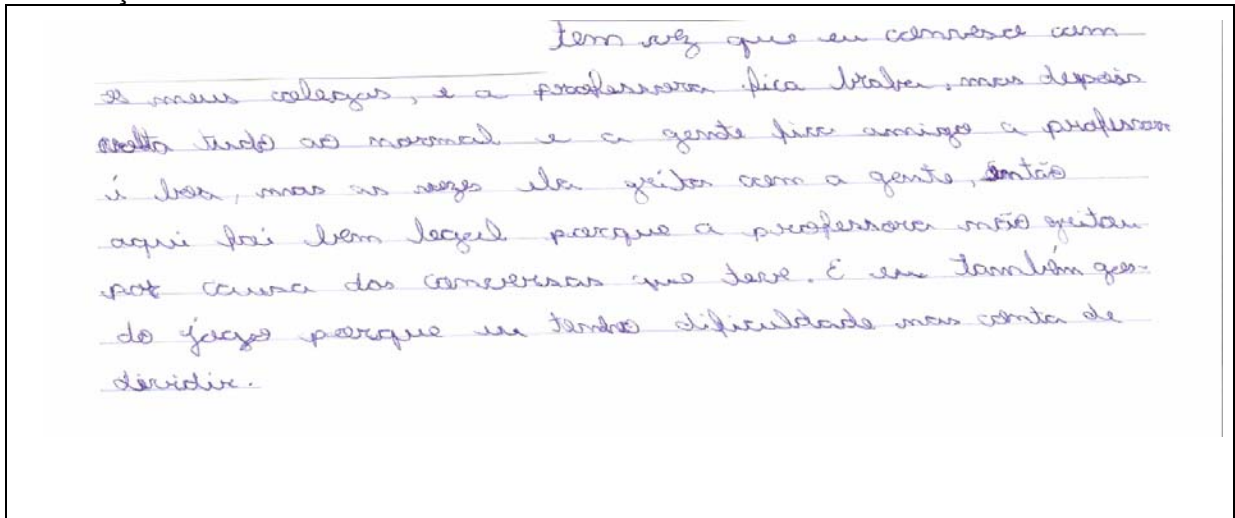 tem vez que eu converso com
os meus colegas, e a professora fica braba, mas depois
volta tudo ao normal e a gente fica amigo a professora
é boa, mas as vezes ela grita com a gente, então
aqui foi bem legal porque a professora não gritou
por causa das conversas que teve. E eu também gos-
do jogo porque eu tenho dificuldade nas conta de
dividir.